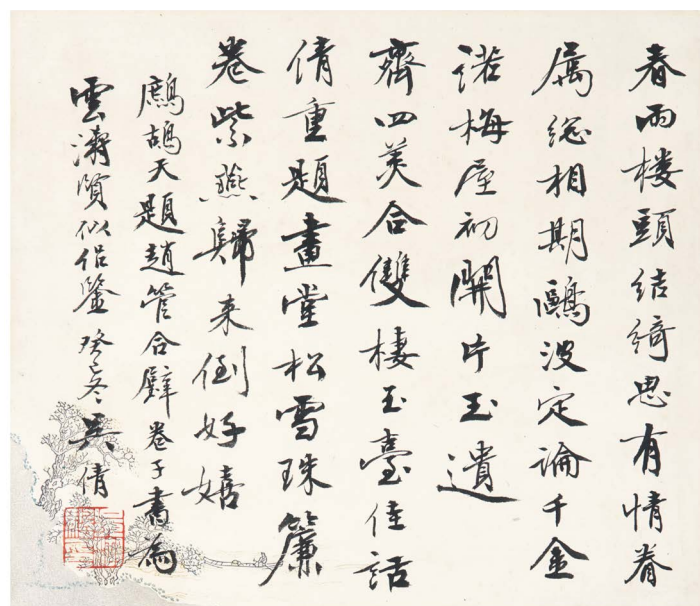 春雨楼頭結綺思有情眷
属總相期鷗波定論千金
諾梅屋初開片玉遺
齊四美合雙棲玉臺佳話
倩重題畫堂松雪珠簾
卷紫燕歸来倒好嬉
鷓鴣天題趙管合璧卷子書為
雲濤賢似侶鑒癸巳冬吴倩